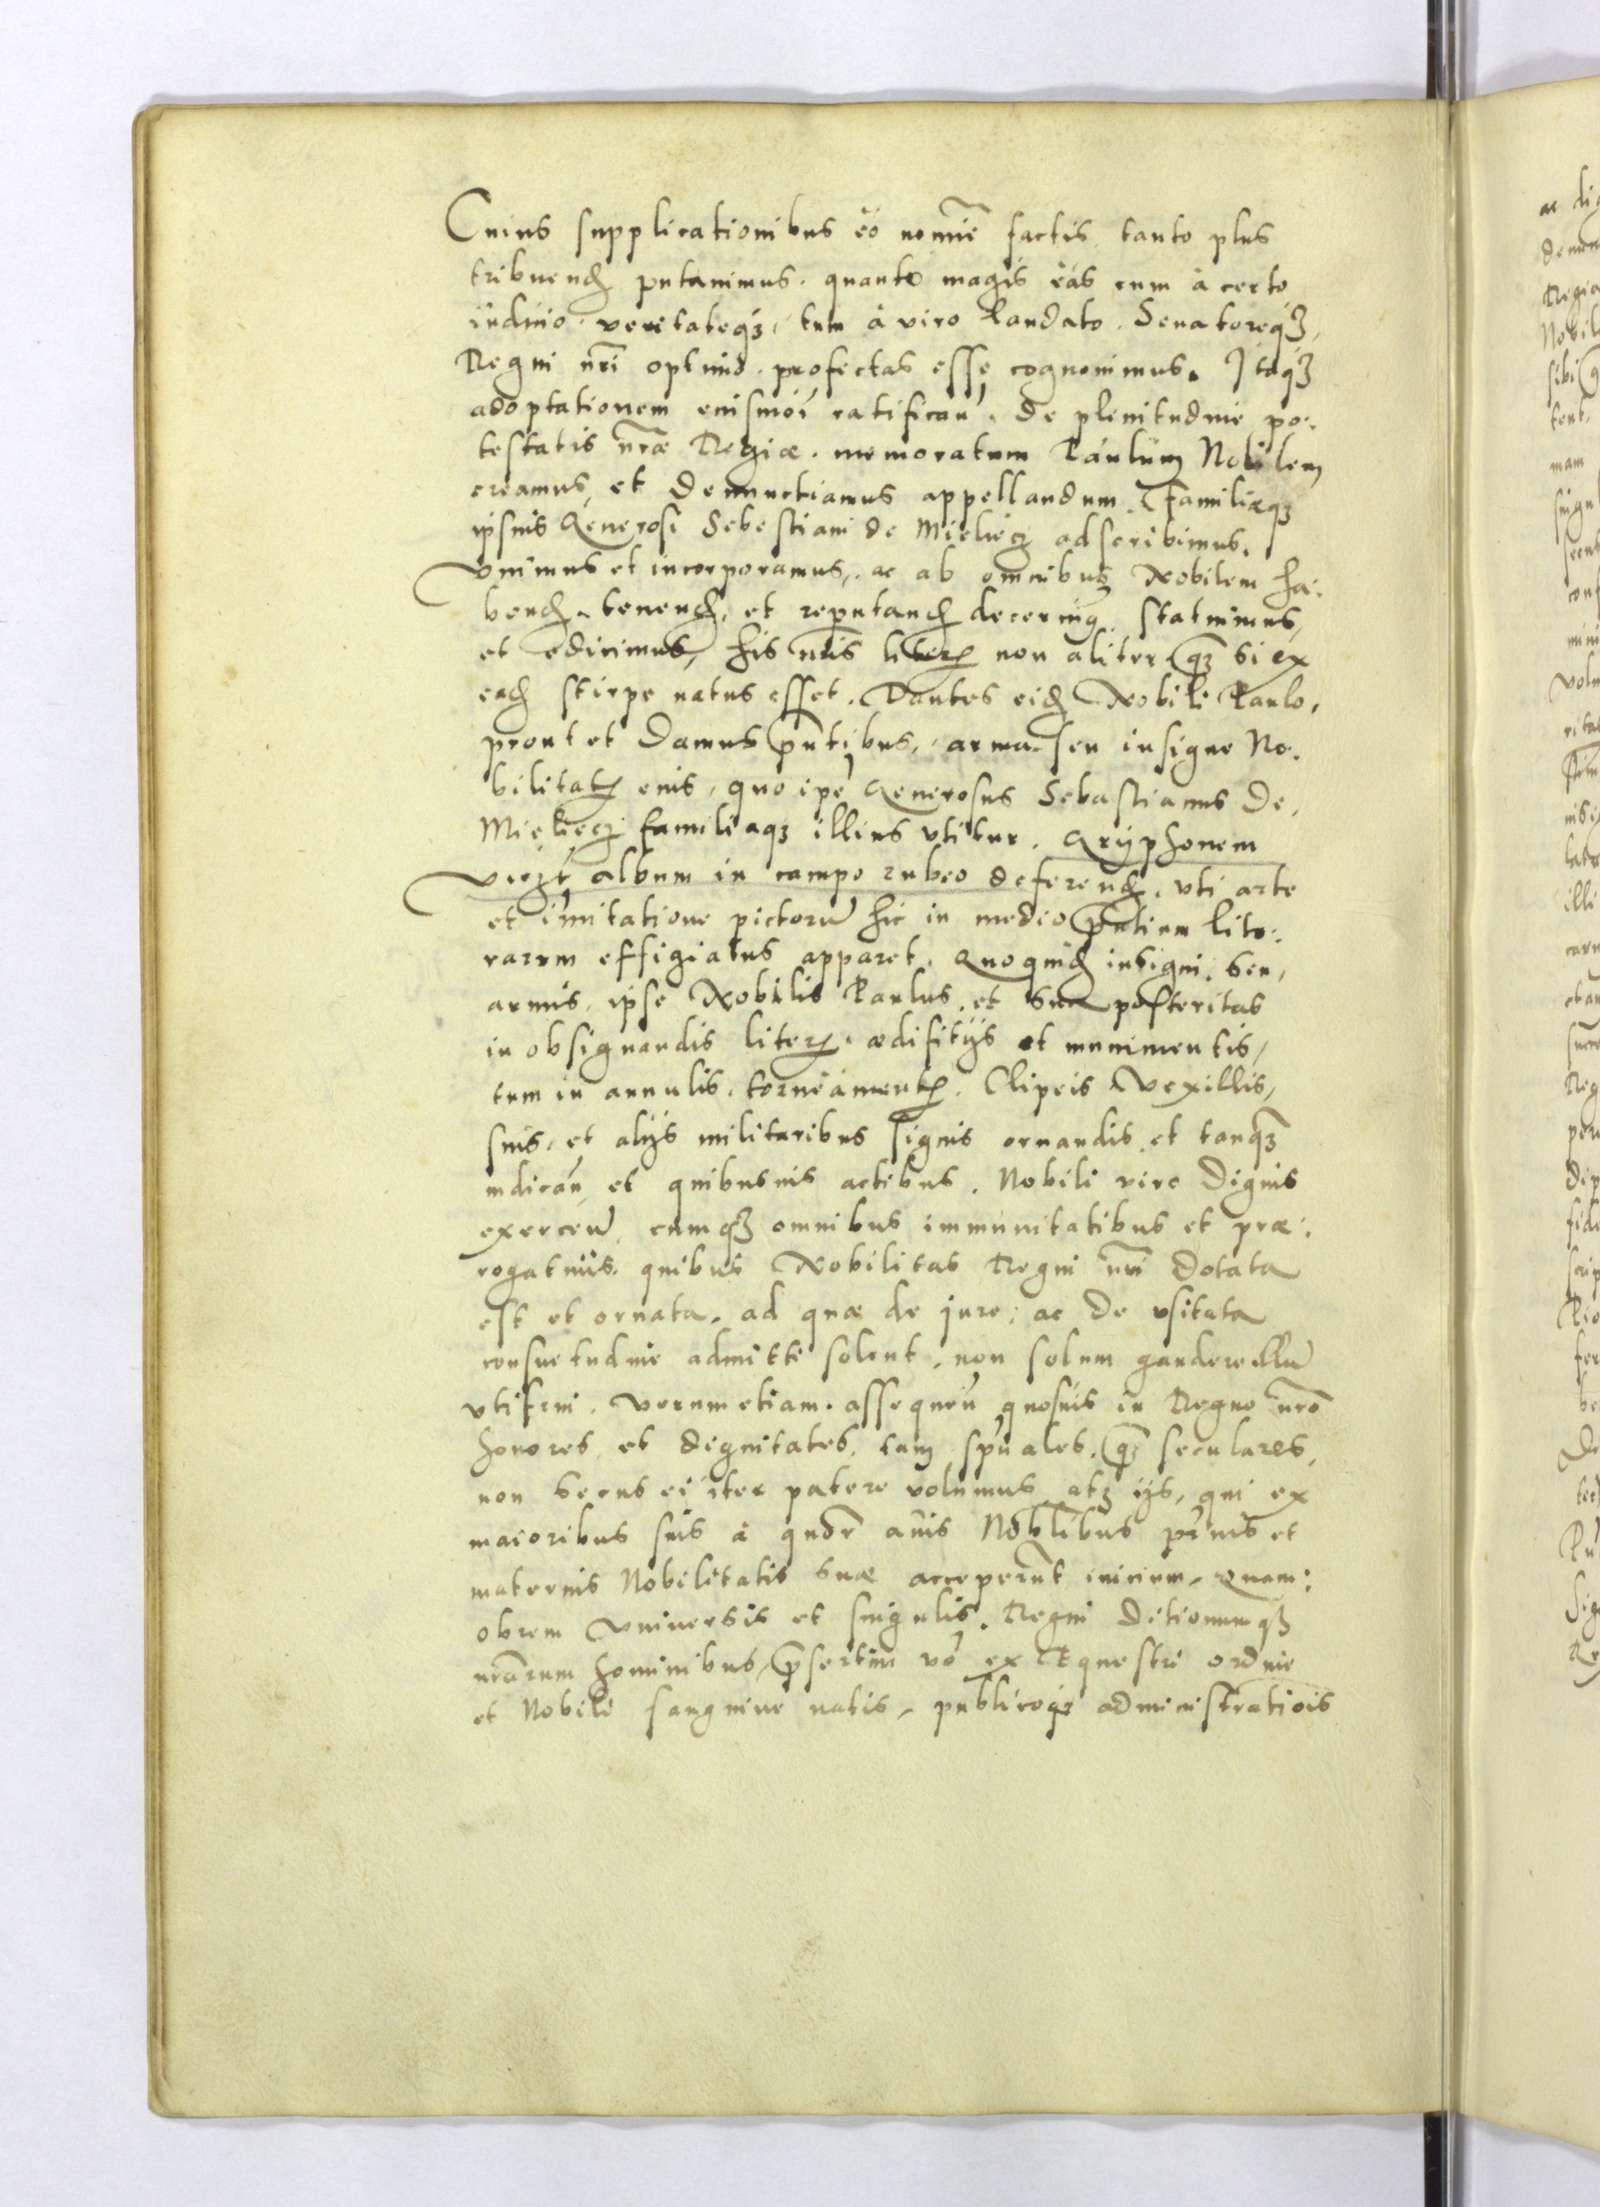 Cuius supplicationibus eo nomīe factis, tanto plus
tribuend putauimus, quanto magis eas cum à certo
iudicio, veritateq₃, tum à viro Laudato, Senatoreq₃,
Regni nr̄i optimo, profectas esse cognouimus. Itaq₃
adoptationem eiusmōi ratificań, de plenitudine po:
testatis nr̄æ Regiæ, memoratum Paulum Nobilem
creamus, et denunctiamus appellandum, familiæq₃
ipsius Generosi Sebestiani de Mieliecz adscribimus,
Vnimus et incorporamus, ac ab omnibus Nobilem ha:
bend, tenend, et reputand decernim9, statuimus,
et edicimus, his nr̄is literis non aliter q₃ si ex
ead stirpe natus esset. Dantes eid Nobili Paulo,
prout et damus pn̄tibus, arma seu insigne No:
bilitatis eius, quo ipē Generosus Sebastianus de
Mieliecz familiaq₃ illius vtitur, Gryphonem
vizt album in campo rubeo deferend, vti arte
et imitatione pictorū hic in medio pn̄tium lite:
rarum effigiatus apparet. Quoquid insigni, seu
armis, ipse Nobilis Paulus, et sua posteritas
in obsignandis literis, ædifitijs et munimentis,
tum in annulis, torneamentis, Clipeis Vexillis,
suis, et alijs militaribus signis ornandis, et tanq₃
indicań et quibusuis actibus, Nobili viro dignis
exerceń, cumq₃ omnibus immunitatibus et præ:
rogatiuis, quibus Nobilitas Regni nr̄i dotata
est et ornata, ad quæ de jure, ac de vsitata
consuetudine admitti solent, non solum gaudere illū
vti frui, verumetiam assequeń quosuis in Regno nr̄o
honores et dignitates, tam spūales, q₃ seculares,
non secus ei iter patere volumus atq₃ ijs, qui ex
maioribus suis à quor̄ auis Nob̄libus pr̄nis et
maternis Nobilitatis suæ acceperūt inicium. Quam:
obrem Vniuersis et singulis, Regni ditionumq₃
nr̄arum hominibus, p̄sertim vō ex Equestri ordine
et Nobili sanguine natis, publicoq₃ administratiōis